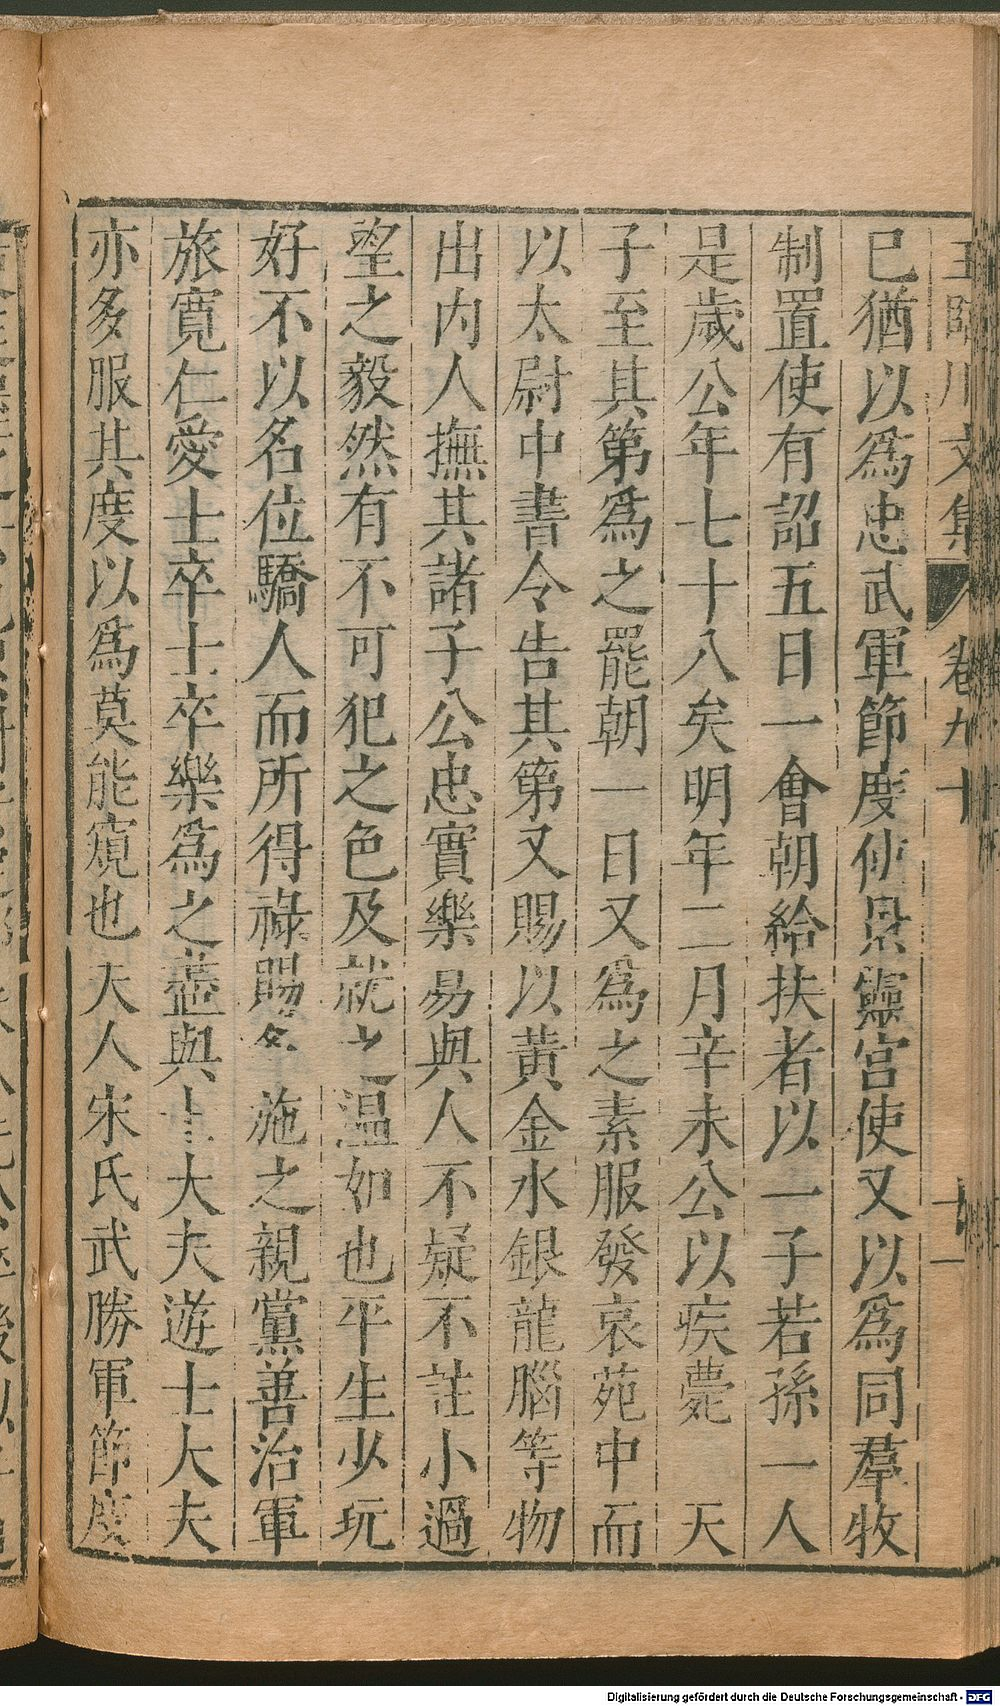 王臨川文集 卷九十 十一
已猶以爲忠武軍節度使景靈宮使又以爲同羣牧
制置使有詔五日一會朝給扶者以一子若孫一人
是歲公年七十八矣明年二月辛未公以疾薨 天
子至其第爲之罷朝一日又爲之素服發哀苑中而
以太尉中書令告其第又賜以黃金水銀龍腦等物
出內人撫其諸子公忠實樂易與人不疑不詿小過
望之毅然有不可犯之色及就之溫如也平生少玩
好不以名位驕人而所得祿賜多施之親黨善治軍
旅寬仁愛士卒士卒樂爲之盡與士大夫遊士大夫
亦多服其度以爲莫能窺也夫人宋氏武勝軍節度
Digitalisierung gefördert durch die Deutsche Forschungsgemeinschaft - DFG